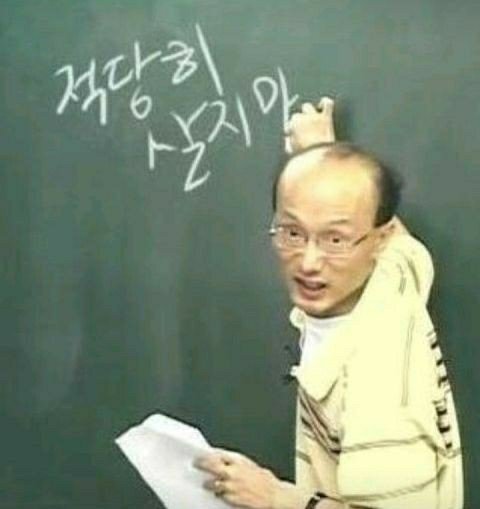 적당히
살지마